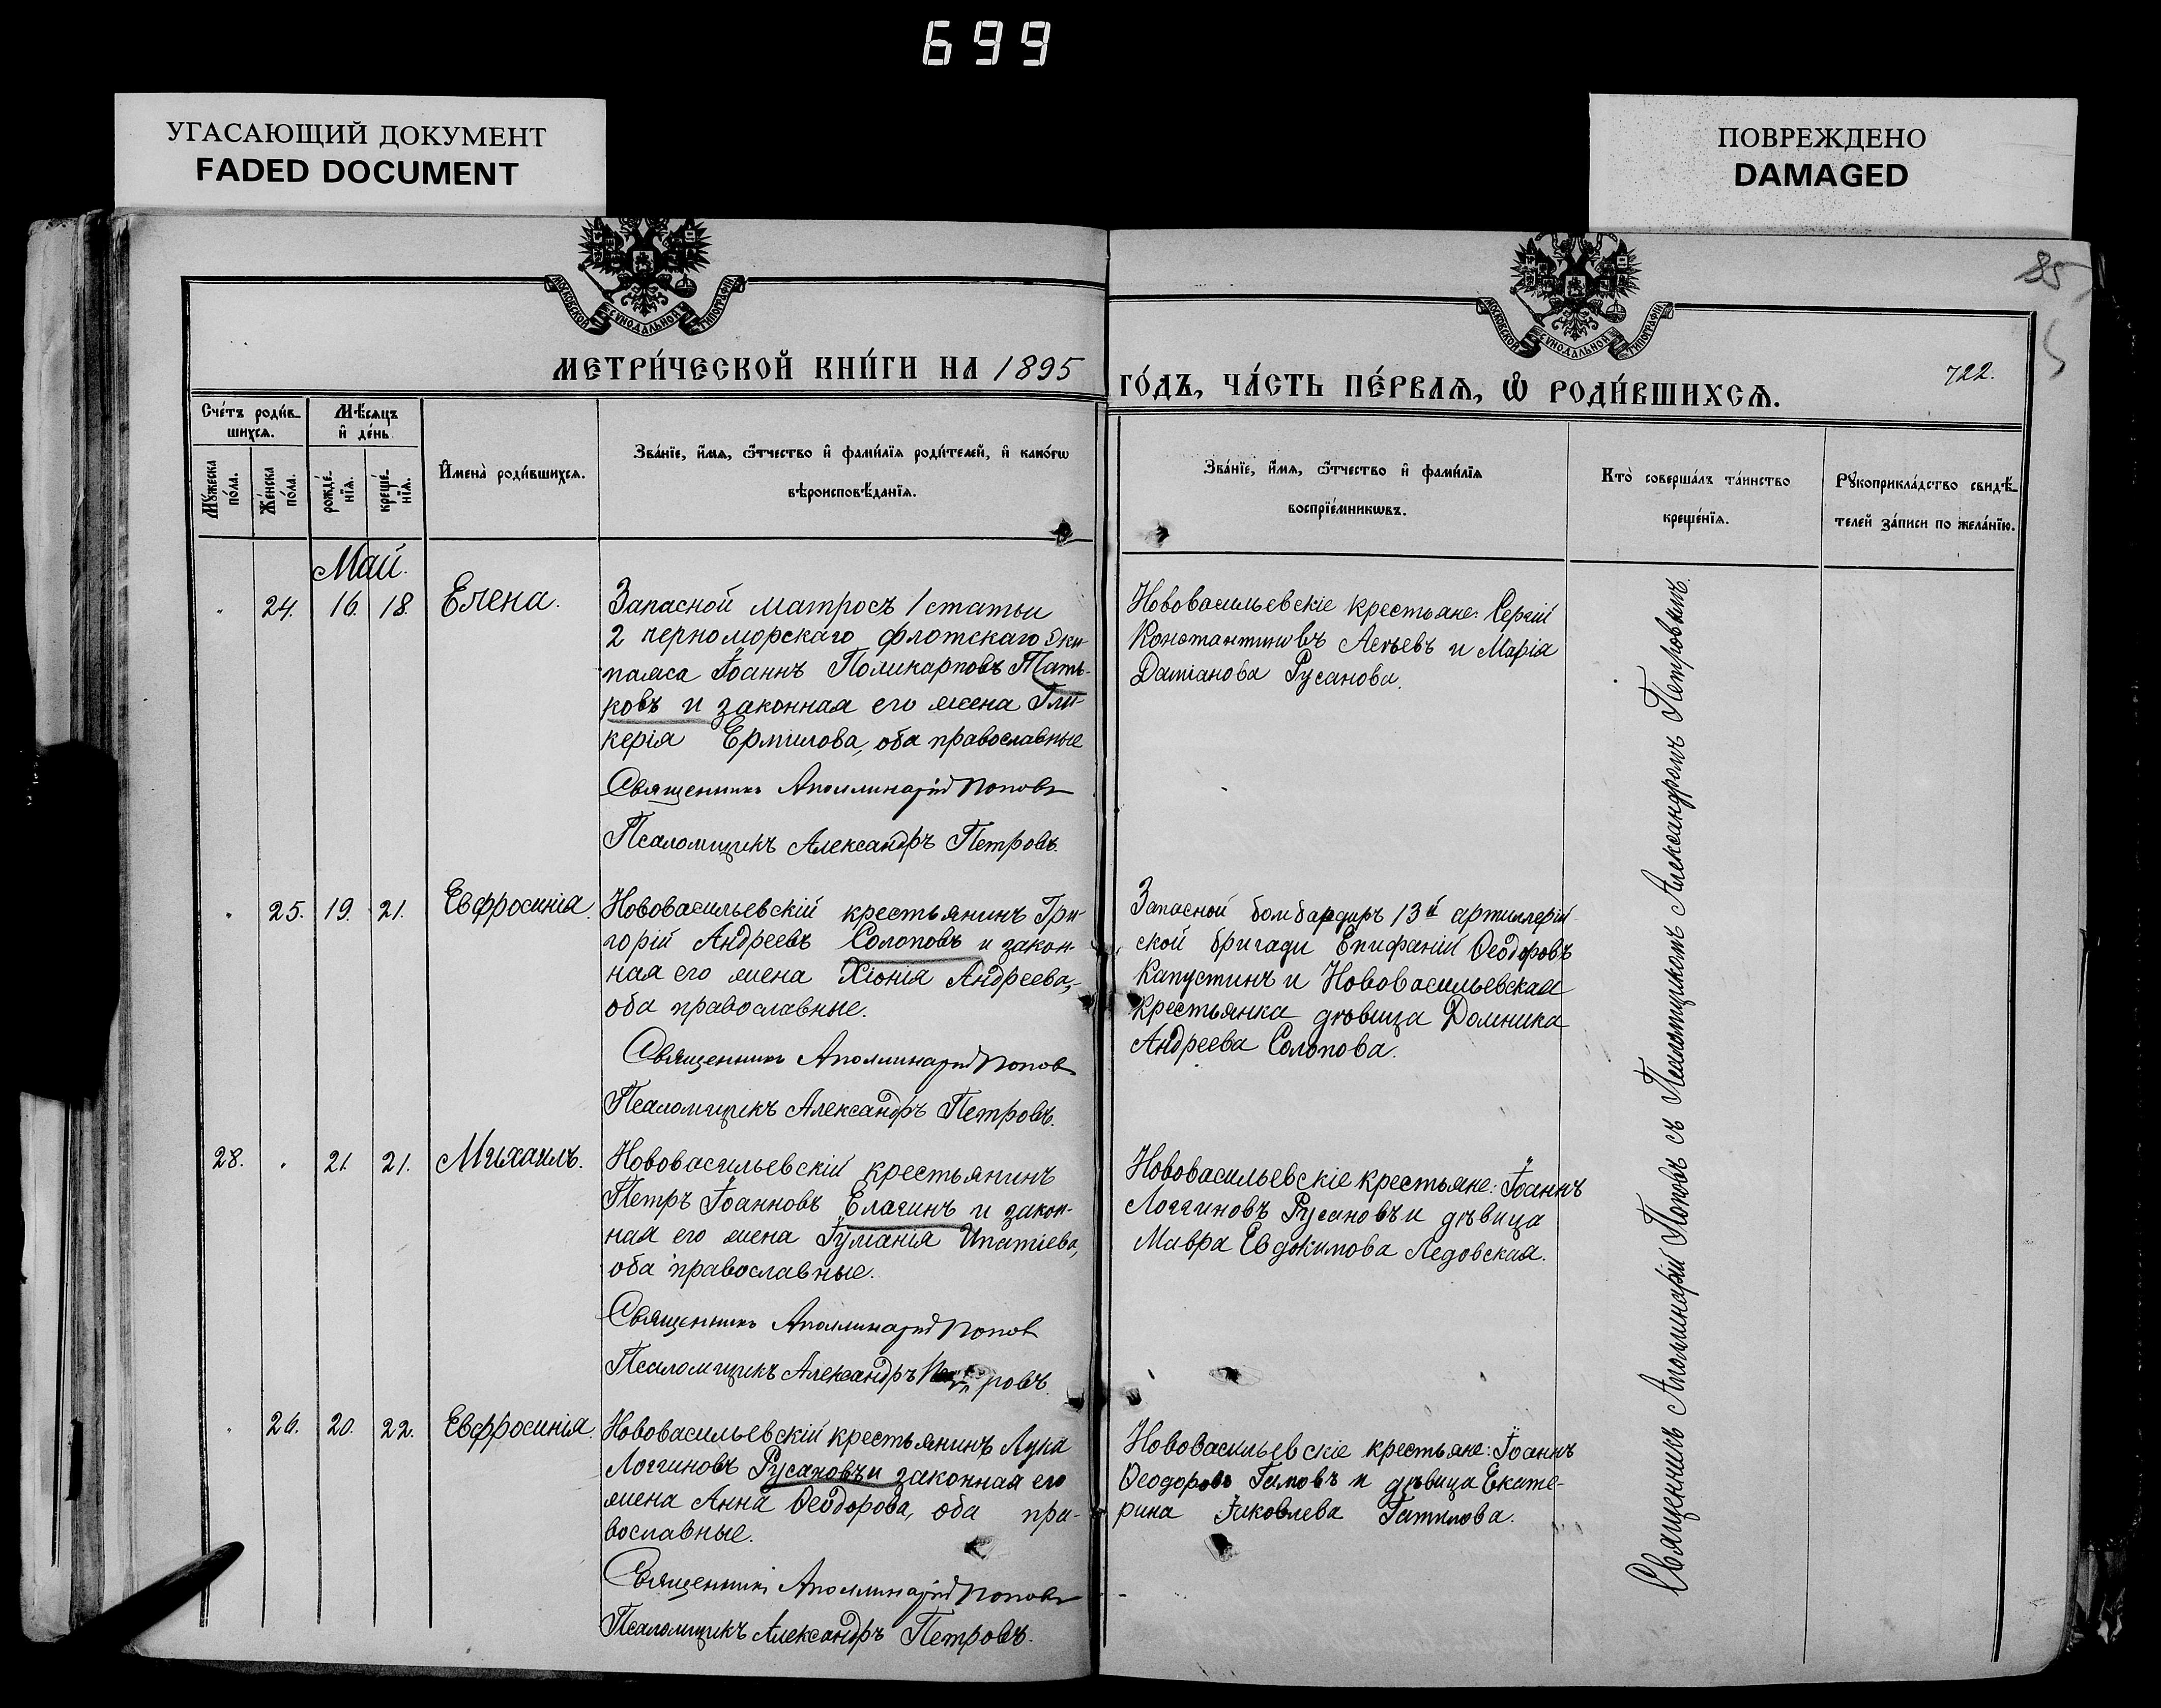 699
УГАСАЮЩИЙ ДОКУМЕНТ
FADED DOCUMENT
ПОВРЕЖДЕНО
DAMAGED
МОСКОВСКОЙ СѴНОДАЛЬНОЙ ТИПОГРАФІИ
МОСКОВСКОЙ СѴНОДАЛЬНОЙ ТИПОГРАФІИ
85
МЕТРИ́ЧЕСКОЙ КНИ́ГИ НА 1895
ГО́ДЪ, ЧА́СТЬ ПЕ́РВАѦ, Ѡ҆ РОДИ́ВШИХСѦ.
722.
Сче́тъ роди́в-
шихсѧ.
Мꙋ́жеска
по́ла.
Же́нска
по́ла.
Мѣ́сѧцъ
и҆ де́нь
рожде́-
нїѧ.
креще́-
нїѧ.
И҆мена̀ роди́вшихсѧ.
Зва́нїе, и҆́мѧ, ѻ҆́тчество и҆ фами́лїѧ роди́телей, и҆ како́гѡ
вѣроисповѣ́данїѧ.
Зва́нїе, и҆́мѧ, ѻ҆́тчество и҆ фами́лїѧ
воспрїе́мникѡвъ.
Кто̀ соверша́лъ та́инство
креще́нїѧ.
Рꙋкоприкла́дство свидѣ́-
телей за́писи по жела́нїю.
Май.
" 24. 16. 18. Елена.
Запасной матросъ 1 статьи
2 черноморскаго флотскаго эки-
пажа Іоаннъ Поликарповъ Тать-
ковъ и законная его жена Гли-
керія Ермилова, оба православные
Священникъ Аполлинарій Поповъ
Псаломщикъ Александръ Петровъ.
Нововасильевскіе крестьяне: Сергій
Константиновъ Асѣевъ и Марія
Даміанова Русанова.
" 25. 19. 21. Евфросинія.
Нововасильевскій крестьянинъ Гри-
горій Андреевъ Солоповъ и закон-
ная его жена Хіонія Андреева,
оба православные.
Священникъ Аполлинарій Поповъ
Псаломщикъ Александръ Петровъ.
Запасной бомбардиръ 13й артиллерій-
ской бригады Епифаній Ѳеодоровъ
Капустинъ и Нововасильевская
крестьянка дѣвица Домника
Андреева Солопова.
28. " 21. 21. Михаилъ.
Нововасильевскій крестьянинъ
Петръ Іоанновъ Елагинъ и закон-
ная его жена Іуманія Ипатіева,
оба православные.
Священникъ Аполлинарій Поповъ
Псаломщикъ Александръ Петровъ.
Нововасильевскіе крестьяне: Іоаннъ
Логгиновъ Русановъ и дѣвица
Мавра Евдокимова Ледовская.
" 26. 20. 22. Евфросинія.
Нововасильевскій крестьянинъ Лука
Логгиновъ Русановъ и законная его
жена Анна Ѳеодорова, оба пра-
вославные.
Священникъ Аполлинарій Поповъ
Псаломщикъ Александръ Петровъ.
Нововасильевскіе крестьяне: Іоаннъ
Ѳеодоровъ и дѣвица Екате-
рина Іаковлева Гатилова.
Священникъ Аполлинарій Поповъ съ Псаломщикомъ Александромъ Петровымъ.